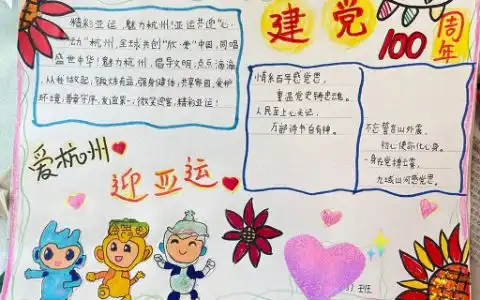 精彩亚运，魅力杭州！亚运共迎"心
动"杭州，全球共创"欣·荣"中国，同唱
盛世中华！魅力杭州，倡导文明；点点滴滴
从我做起，锻炼有益，强身健体，共享家园，爱护
环境；遵章守序，友谊第一，微笑迎宾，精彩亚运！
建党
100
周年
情系百年感党恩，
重温党史铸忠魂。
人民至上心头记，
万部诗书自有神。
不忘誓言山外震，
初心使命化心身。
一身在党
九域山河感党恩。
爱杭州
迎亚运
班